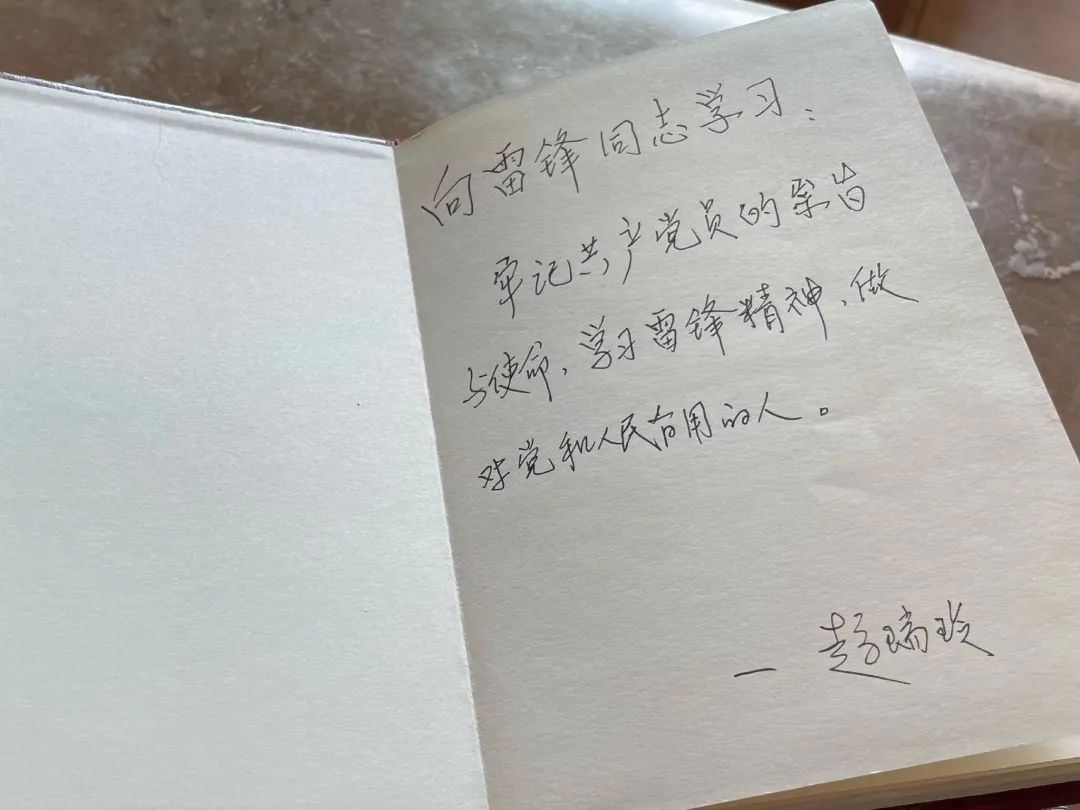 向雷锋同志学习：
牢记共产党员的宗旨
与使命，学习雷锋精神，做
对党和人民有用的人。
— 赵瑞玲